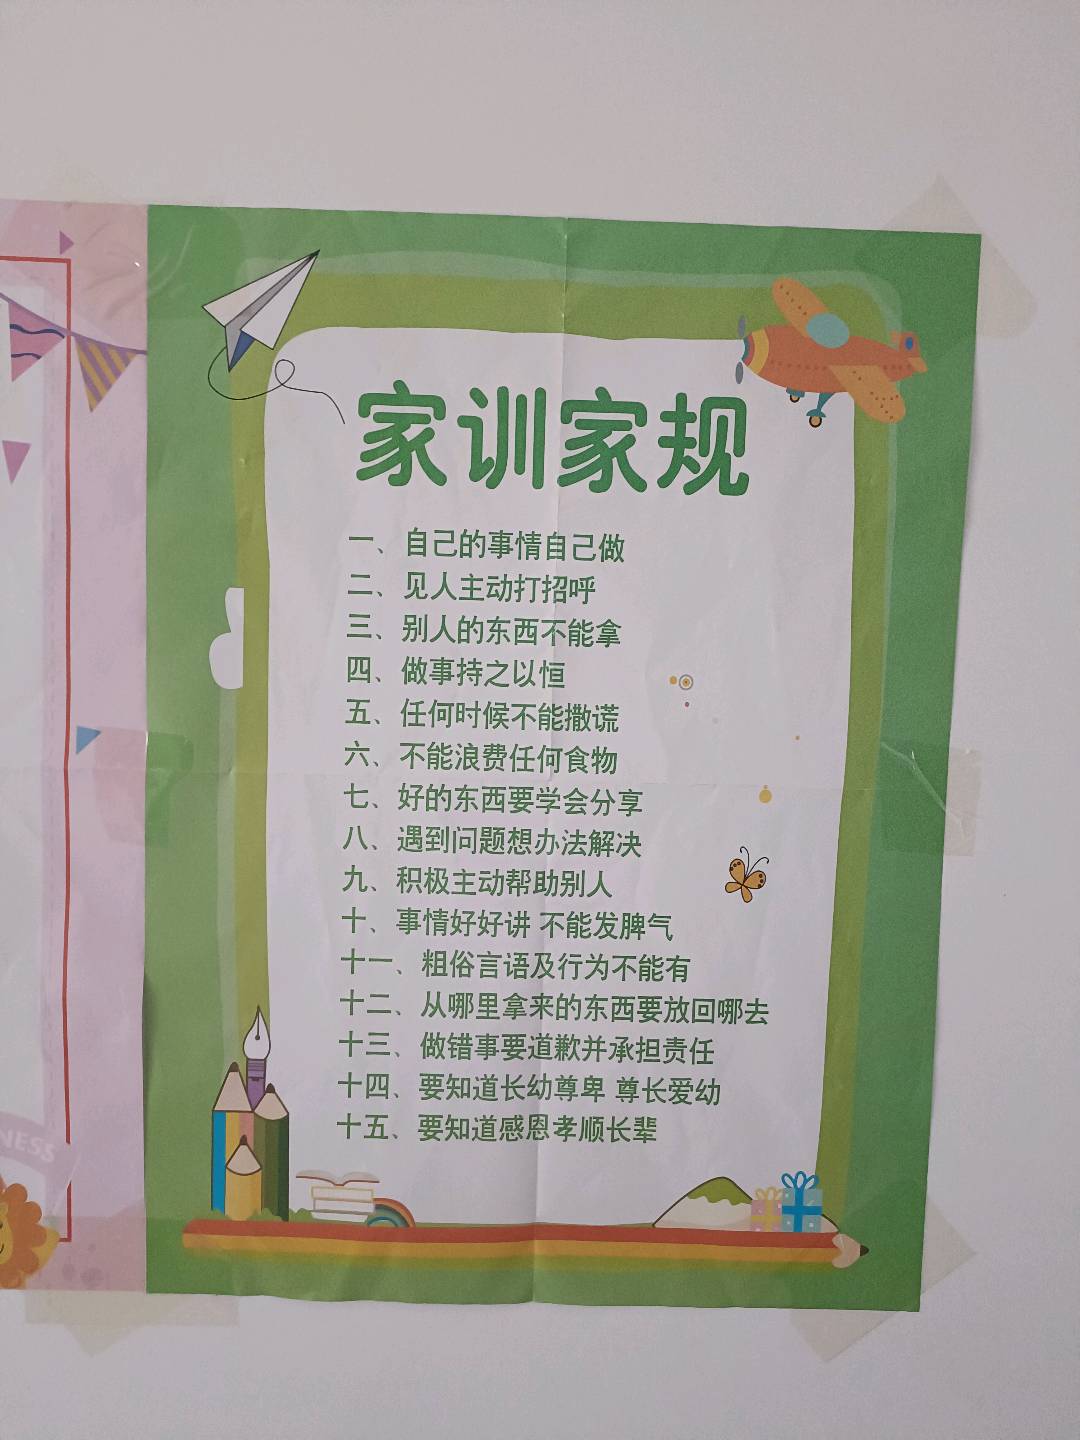 家训家规
一、自己的事情自己做
二、见人主动打招呼
三、别人的东西不能拿
四、做事持之以恒
五、任何时候不能撒谎
六、不能浪费任何食物
七、好的东西要学会分享
八、遇到问题想办法解决
九、积极主动帮助别人
十、事情好好讲 不能发脾气
十一、粗俗言语及行为不能有
十二、从哪里拿来的东西要放回哪去
十三、做错事要道歉并承担责任
十四、要知道长幼尊卑 尊长爱幼
十五、要知道感恩孝顺长辈
NESS